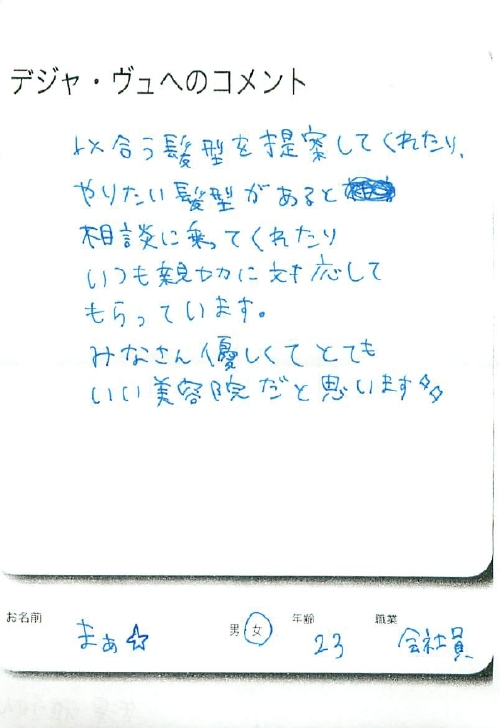 デジャ・ヴュへのコメント
似合う髪型を提案してくれたり、
やりたい髪型があると
相談に乗ってくれたり
いつも親切に対応して
もらっています。
みなさん優しくてとても
いい美容院だと思います
お名前 まぁ☆ 男 女 年齢 23 職業 会社員